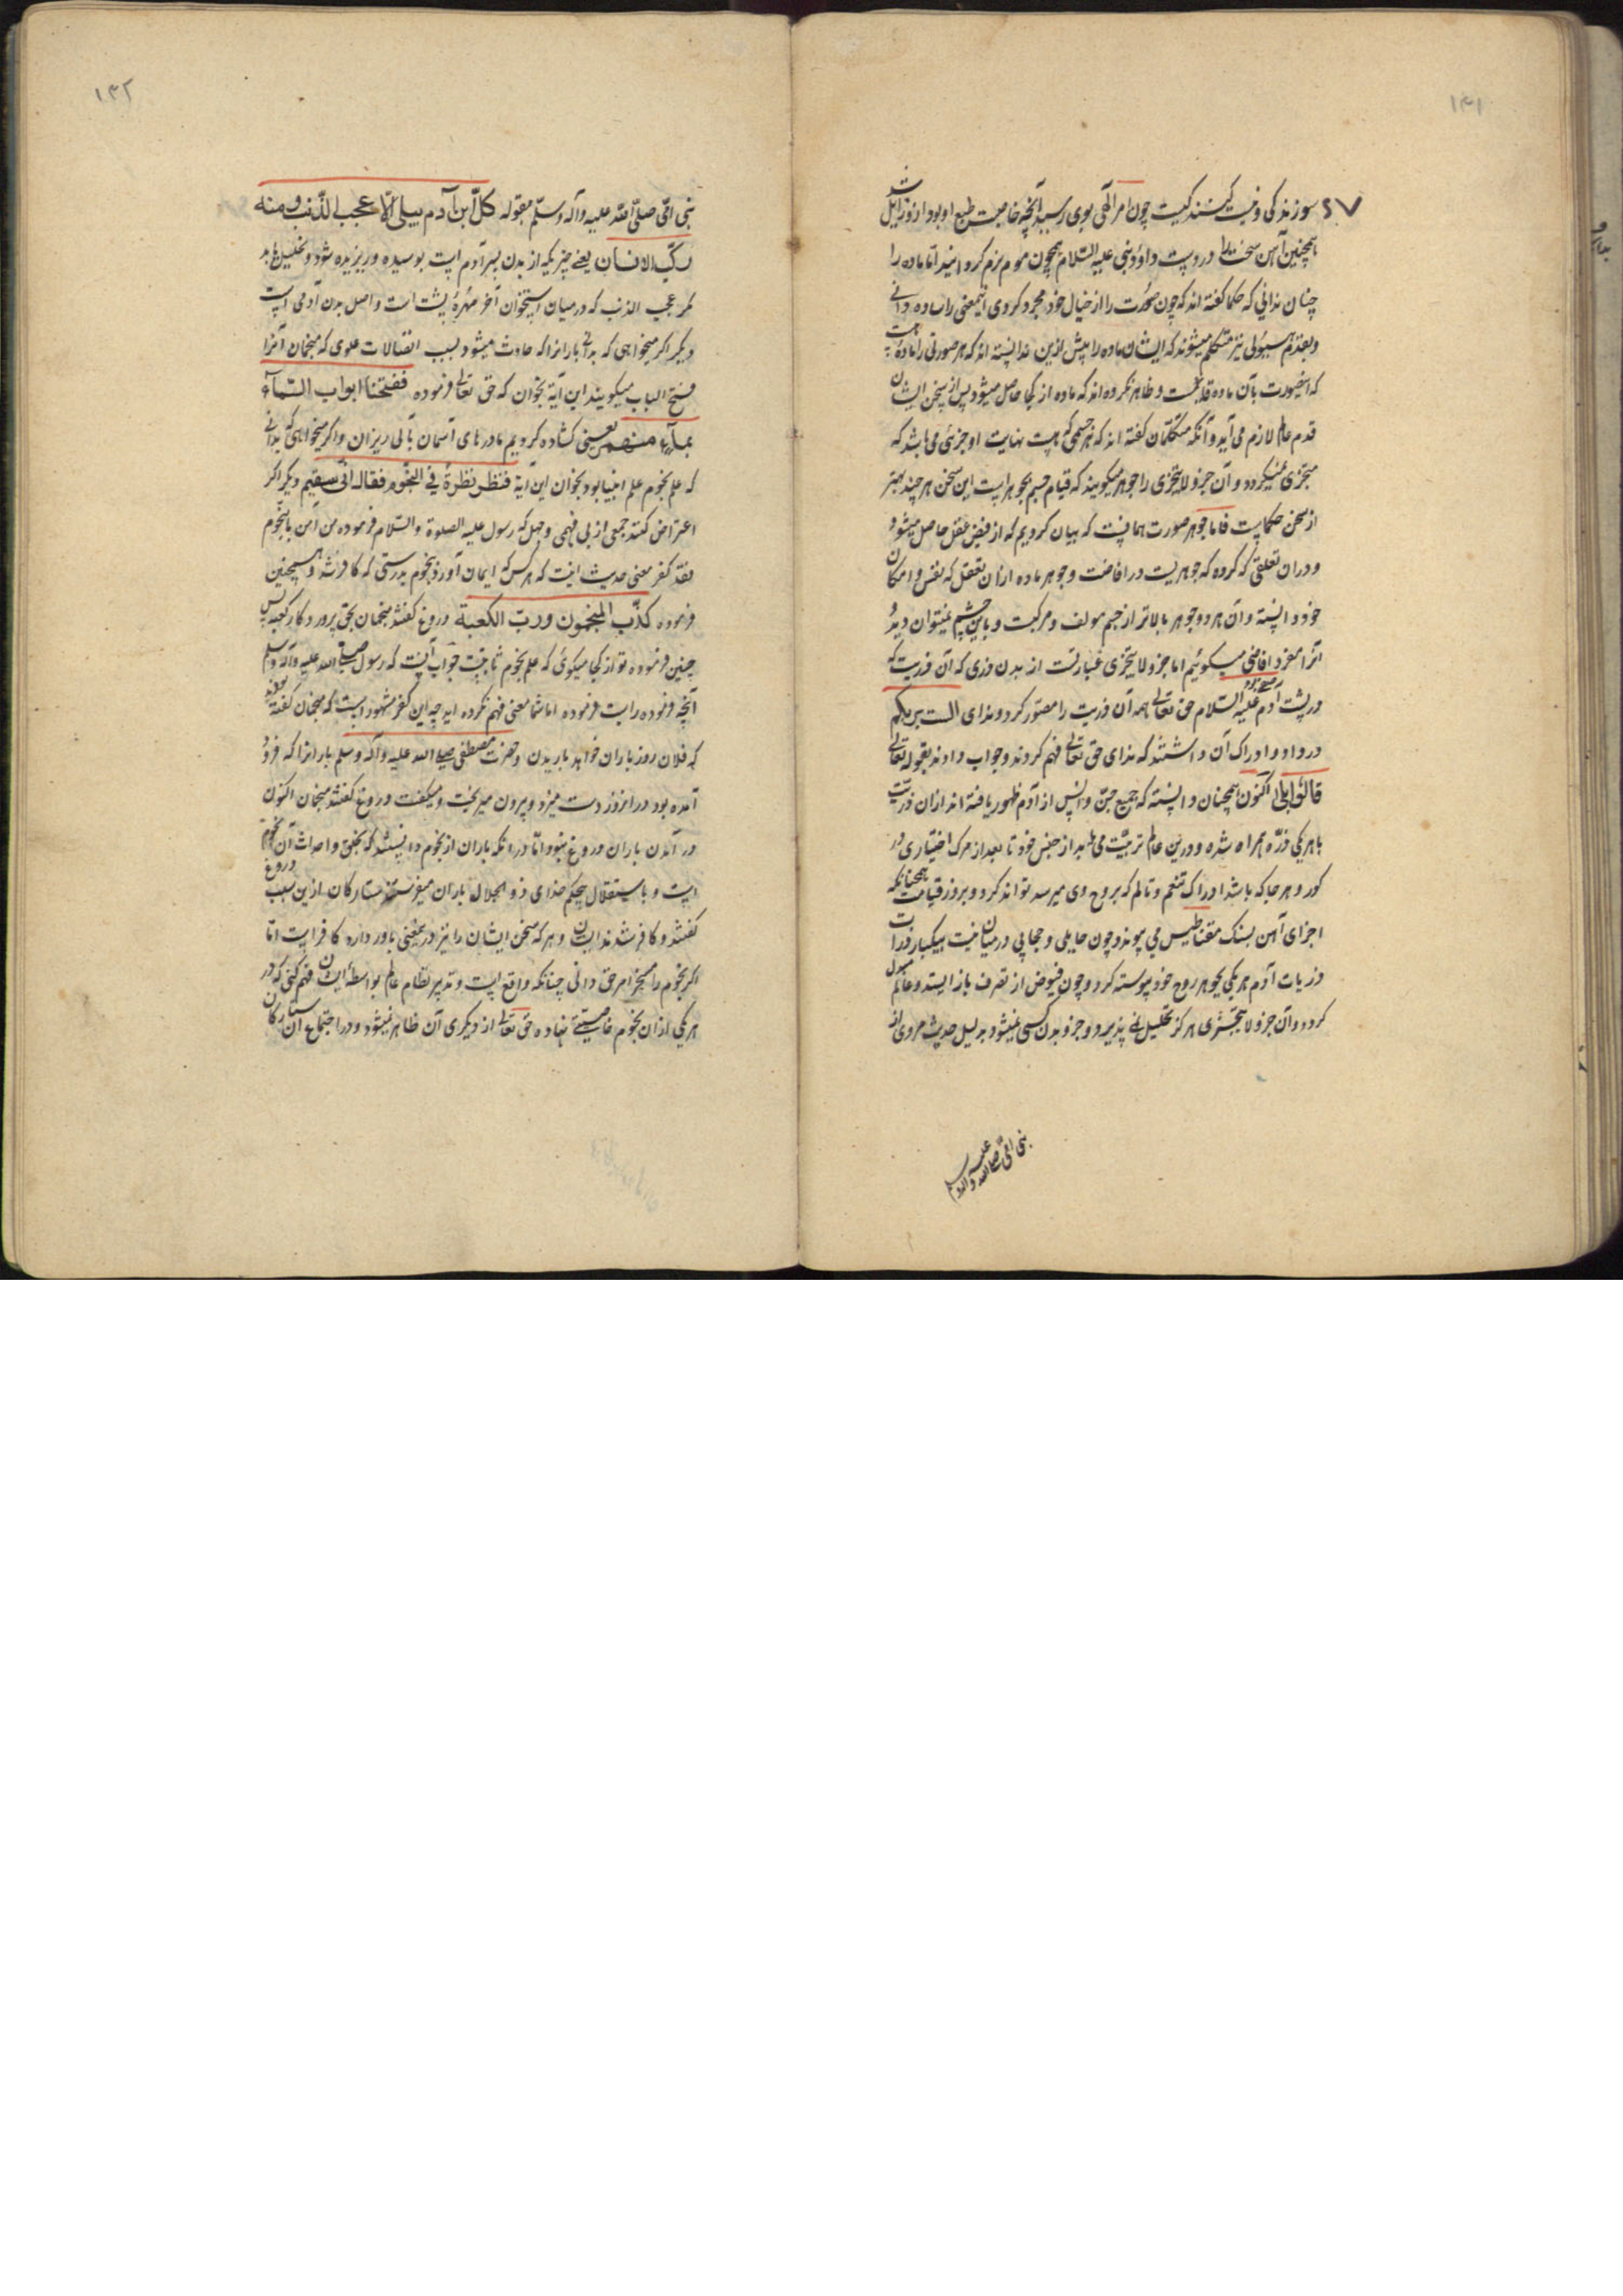 ۱۴۱
سوزندگی وخبث کیست چون امر الهی بوی رسید آنچه خاصیت طبع او بود ازو زایل شد
همچنین آهن سخت در دست داود نبی علیه السلام همچون موم نرم کردانید اما ماده را
چنان ندانی که حکما گفته اند که چون صورت را از خیال خود مجرد کردی آنمعنی را ماده دانی
وبقدم هیولی نیز متکلم میشوند که ایشان ماده را پیش ازین ندانسته اند که هر صورتی را ماده ایست
که آنصورت بآن ماده قایمست و ظاهر نکرده اند که ماده از کجا حاصل میشود پس از سخن ایشان
قدم عالم لازم می آید و آنکه متکلمان گفته اند که هر جسمی که هست نهایت او جزئی می باشد که
متجزی نمیگردد و آن جزو لا یتجزی را جوهر میگویند که قیام جسم بجوهر است این سخن هر چند بهتر
از سخن حکماست فاما جوهر صورت همانست که بیان کردیم که از فیض عقل حاصل میشود
ودران تعلقی که کرده که جوهریست در افاضت و جوهر ماده ازان تعقل که نفس و امکان
خود دانسته و آن هر دو جوهر بالاتر از جسم مولف و مرکبست و باین چشم نمیتوان دید
آنرا مفرد افاضی میگوئیم اما جزو لا یتجزی عبارتست از بدن ذری که آن ذریت که
در پشت آدم صفی بود علیه السلام حق تعالی همه آن ذریت را مصور کرد و ندای الست بربکم
در داد و ادراک آن داشتند که ندای حق تعالی فهم کردند و جواب دادند بقوله تعالی
قالوا بلی اکنون همچنان دانسته که جمیع جن و انس از آدم ظهور یافته اند ازان ذریت
با هر یکی ذرّه همراه شده و درین عالم تربیت می یابد از جنس خود تا بعد از مرک اختیاری در
کور و هر جا که باشد ادراک تنعم و تالم که بروح وی میرسد تواند کرد و بروز قیامت همچنانکه
اجزای آهن بسنک مقناطیس می پیوندد چون حایلی و حجابی درمیان نیست بیکبار ذرات
ذریات آدم هر یکی بجوهر روح خود پیوسته کردد و چون فیوض از تصرف باز ایستد و عالم مبدل
کردد و آن جزو لا یتجزی هرگز تحلیل نمی پذیرد و جزو بدن کسی نمیشود بدلیل حدیث مروی از
نبی امی صلی الله علیه وآله وسلم
۱۴۲
نبی امّی صلّی اللّه علیه وآله وسلّم بقوله کلّ ابن آدم یبلی الّا عجب الذّنب ومنه
رکّب الانسان یعنی چیزیکه از بدن پسر آدم است بوسیده و ریزیده شود و تحلیل یابد
مگر عجب الذنب که درمیان استخوان آخر مهره پشت است واصل بدن آدمی است
دیکر اکر میخواهی که بدانی بارانرا که حادث میشود بسبب اتصالات علوی که منجمان آنرا
فتح الباب میکویند این آیة بخوان که حق تعالی فرموده ففتحنا ابواب السّمآء
بمآء منهمر یعنی کشاده کردیم ما درهای آسمان بآبی ریزان و اکر میخواهی که بدانی
که علم نجوم علم انبیا بود بخوان این آیة فنظر نظرة فی النّجوم فقال انّی سقیم دیکر اکر
اعتراض کنند جمعی از بی فهمی و جهل که رسول علیه الصلوة والسّلام فرموده من آمن بالنّجوم
فقد کفر معنی حدیث اینست که هرکس که ایمان آورد بنجوم بدرستی که کافر شد و همچنین
فرموده کذّب المنجّمون وربّ الکعبة دروغ گفتند منجمان بحق پرورد کار کعبه پس
چنین فرموده تو از کجا میکوئی که علم نجوم ثابتست جواب آنست که رسول صلی الله علیه وآله وسلم
آنچه فرموده راست فرموده اما شما معنی فهم نکرده اید چه این نقل مشهور است که منجمان گفته بودند
که فلان روز باران خواهد باریدن و حضرت مصطفی صلی الله علیه وآله وسلم بارانرا که فرود
آمده بود در انروز دست میزد و بیرون میریخت و میکفت دروغ کفتند منجمان اکنون
در آمدن باران دروغ نبود امّا در انکه باران از نجوم دانستند که بخلق و احداث آن نجوم
است و باستقلال بیحکم خدای ذو الجلال باران میفرستند ستارکان ازین سبب دروغ
کفتند و کافر شدند ایشان و هر که سخن ایشان را نیز درین معنی باور دارد کافر است امّا
اکر نجوم را مسخّر امر حق دانی چنانکه واقع است و تدبیر نظام عالم بواسطه ایشان فهم کنی که در
هر یکی ازان نجوم خاصیتی نهاده حق تعالی که از دیکری آن ظاهر نمیشود و در اجتماع آن ستارکان